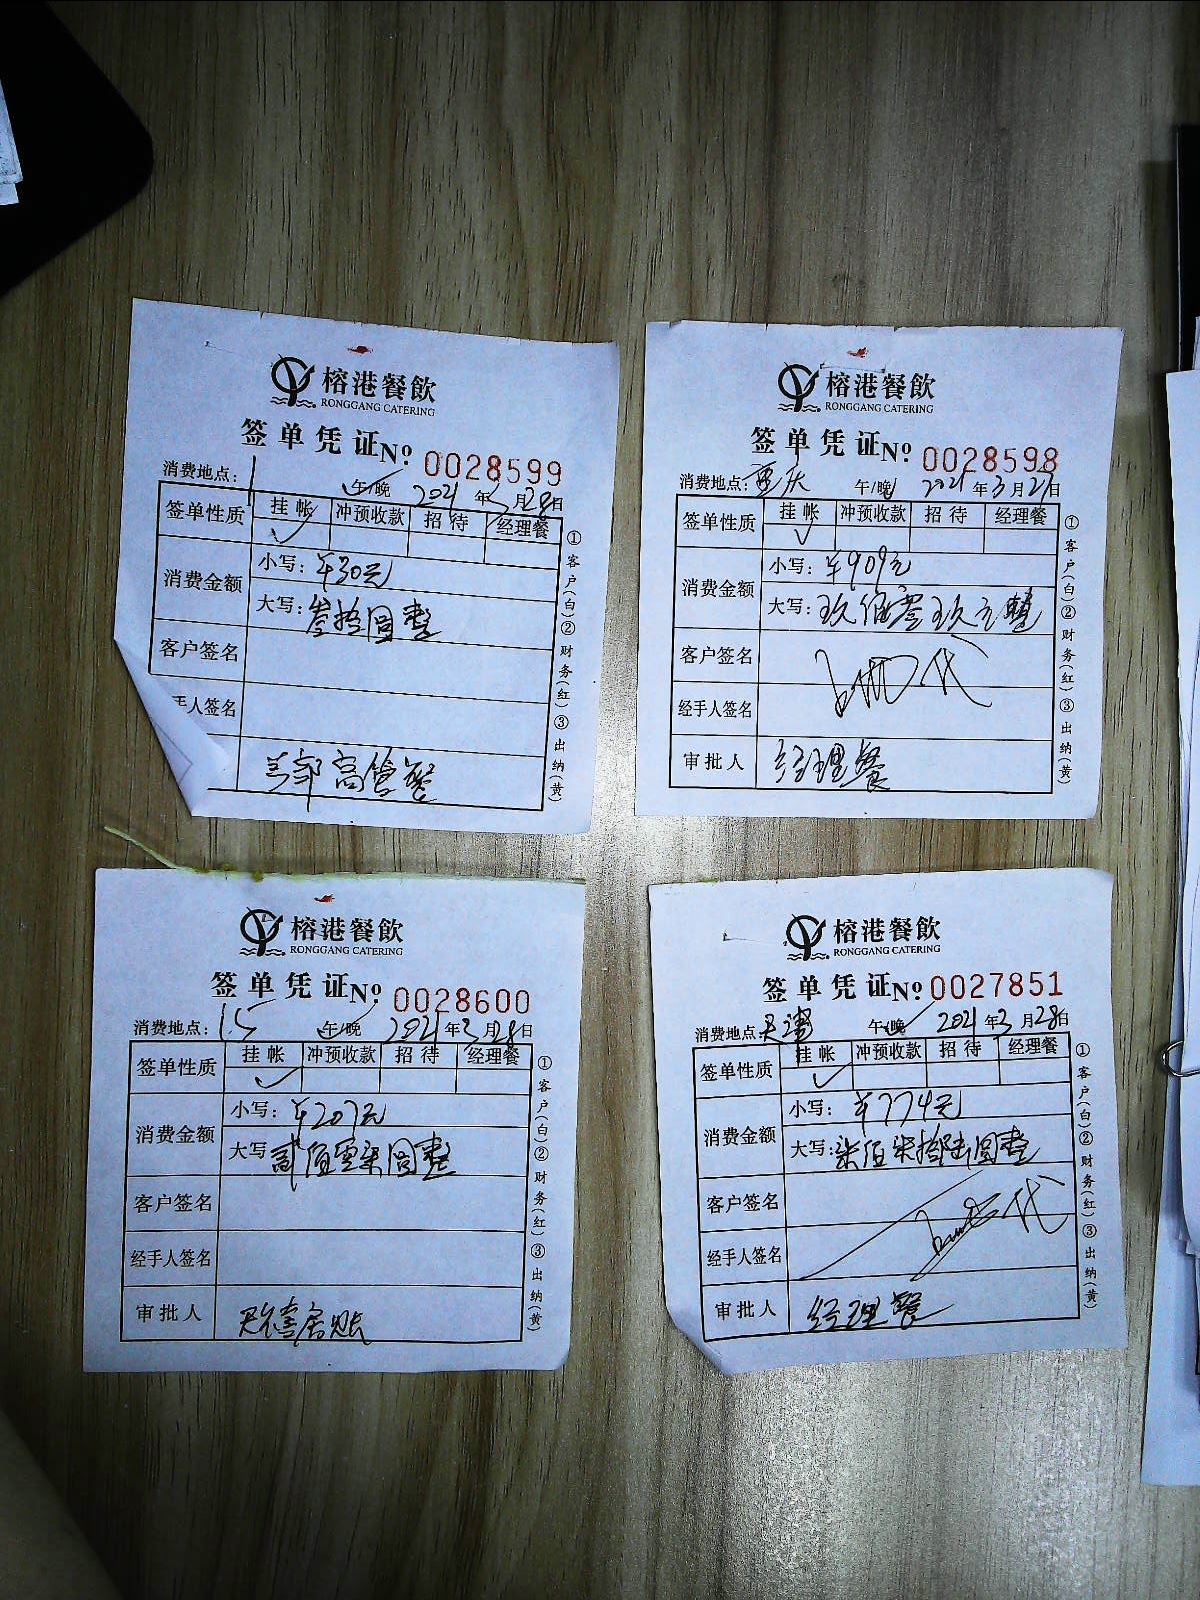 榕港餐飲
RONGGANG CATERING
签单凭证 № 0028599
消费地点: 1 午/晚 2021年3月28日
签单性质 挂帐 冲预收款 招待 经理餐
✓
消费金额 小写: ¥30元
大写: 叁拾圆整
客户签名
手人签名
高管餐
①客户(白)②财务(红)③出纳(黄)
榕港餐飲
RONGGANG CATERING
签单凭证 № 0028598
消费地点: 重庆 午/晚 2021年3月27日
签单性质 挂帐 冲预收款 招待 经理餐
✓
消费金额 小写: ¥909元
大写: 玖佰零玖元整
客户签名 代
经手人签名
审批人 经理餐
①客户(白)②财务(红)③出纳(黄)
榕港餐飲
RONGGANG CATERING
签单凭证 № 0028600
消费地点: 15 午/晚 2021年3月28日
签单性质 挂帐 冲预收款 招待 经理餐
✓
消费金额 小写: ¥207元
大写 贰佰零柒圆整
客户签名
经手人签名
审批人
①客户(白)②财务(红)③出纳(黄)
榕港餐飲
RONGGANG CATERING
签单凭证 № 0027851
消费地点 天津 午/晚 2021年3月28日
签单性质 挂帐 冲预收款 招待 经理餐
✓
消费金额 小写: ¥774元
大写: 柒佰柒拾肆圆整
客户签名 代
经手人签名
审批人 经理餐
①客户(白)②财务(红)③出纳(黄)